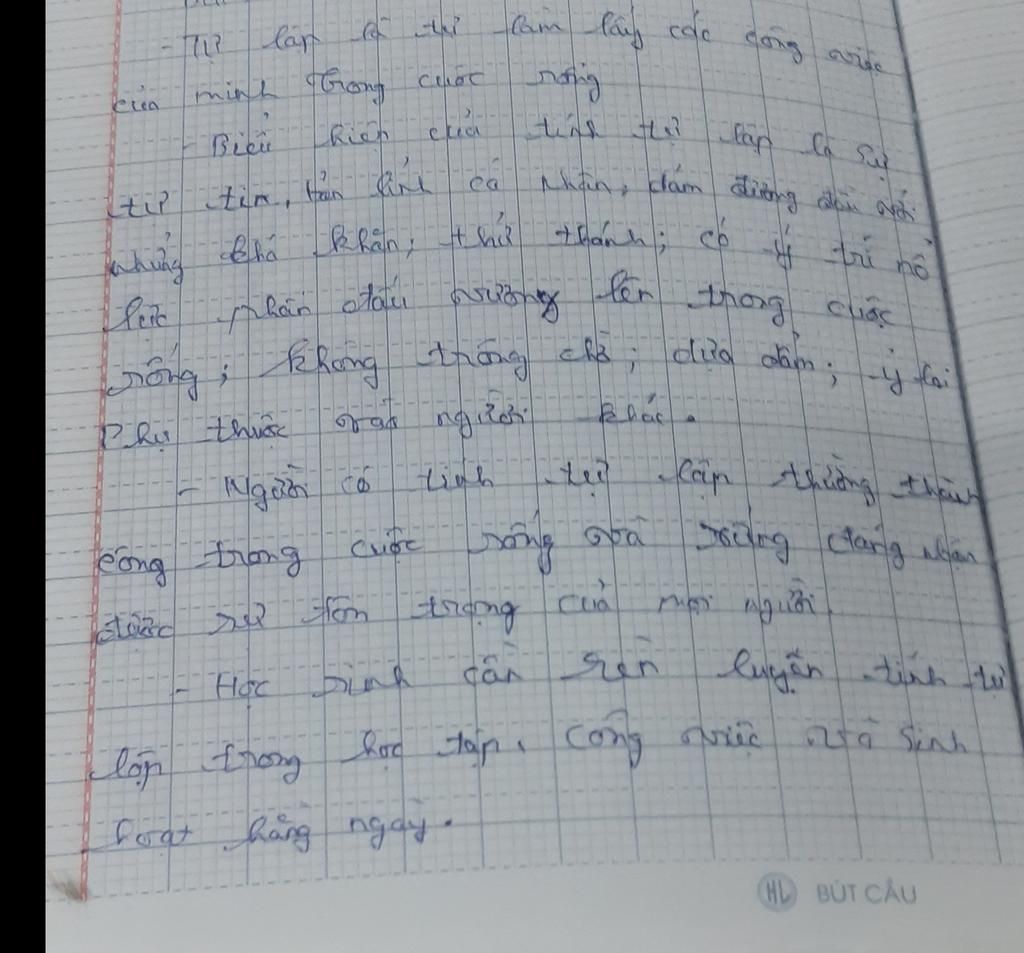 - Tự lập là tự làm lấy các công việc
của mình trong cuộc sống
- Biểu hiện của tính tự lập là sự
tự tin, bản lĩnh cá nhân, dám đương đầu với
những khó khăn, thử thách; có ý trí nỗ
lực phấn đấu vương lên trong cuộc
sống; không trông chờ; dựa dẫm; ỷ lại
phụ thuộc vào người khác.
- Người có tính tự lập thường thành
công trong cuộc sống và xứng đáng nhận
được sự tôn trọng của mọi người
- Học sinh cần rèn luyện tính tự
lập trong học tập, công việc và sinh
hoạt hằng ngày.
HL BÚT CÂU